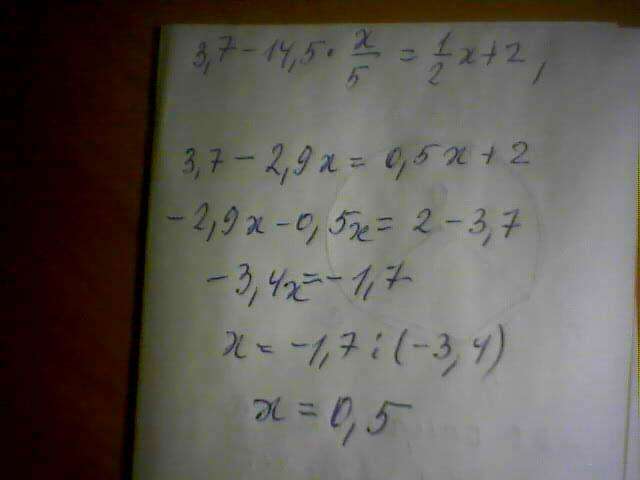 3,7 - 14,5 · x/5 = 1/2 x + 2,
3,7 - 2,9x = 0,5x + 2
-2,9x - 0,5x = 2 - 3,7
-3,4x = -1,7
x = -1,7 : (-3,4)
x = 0,5